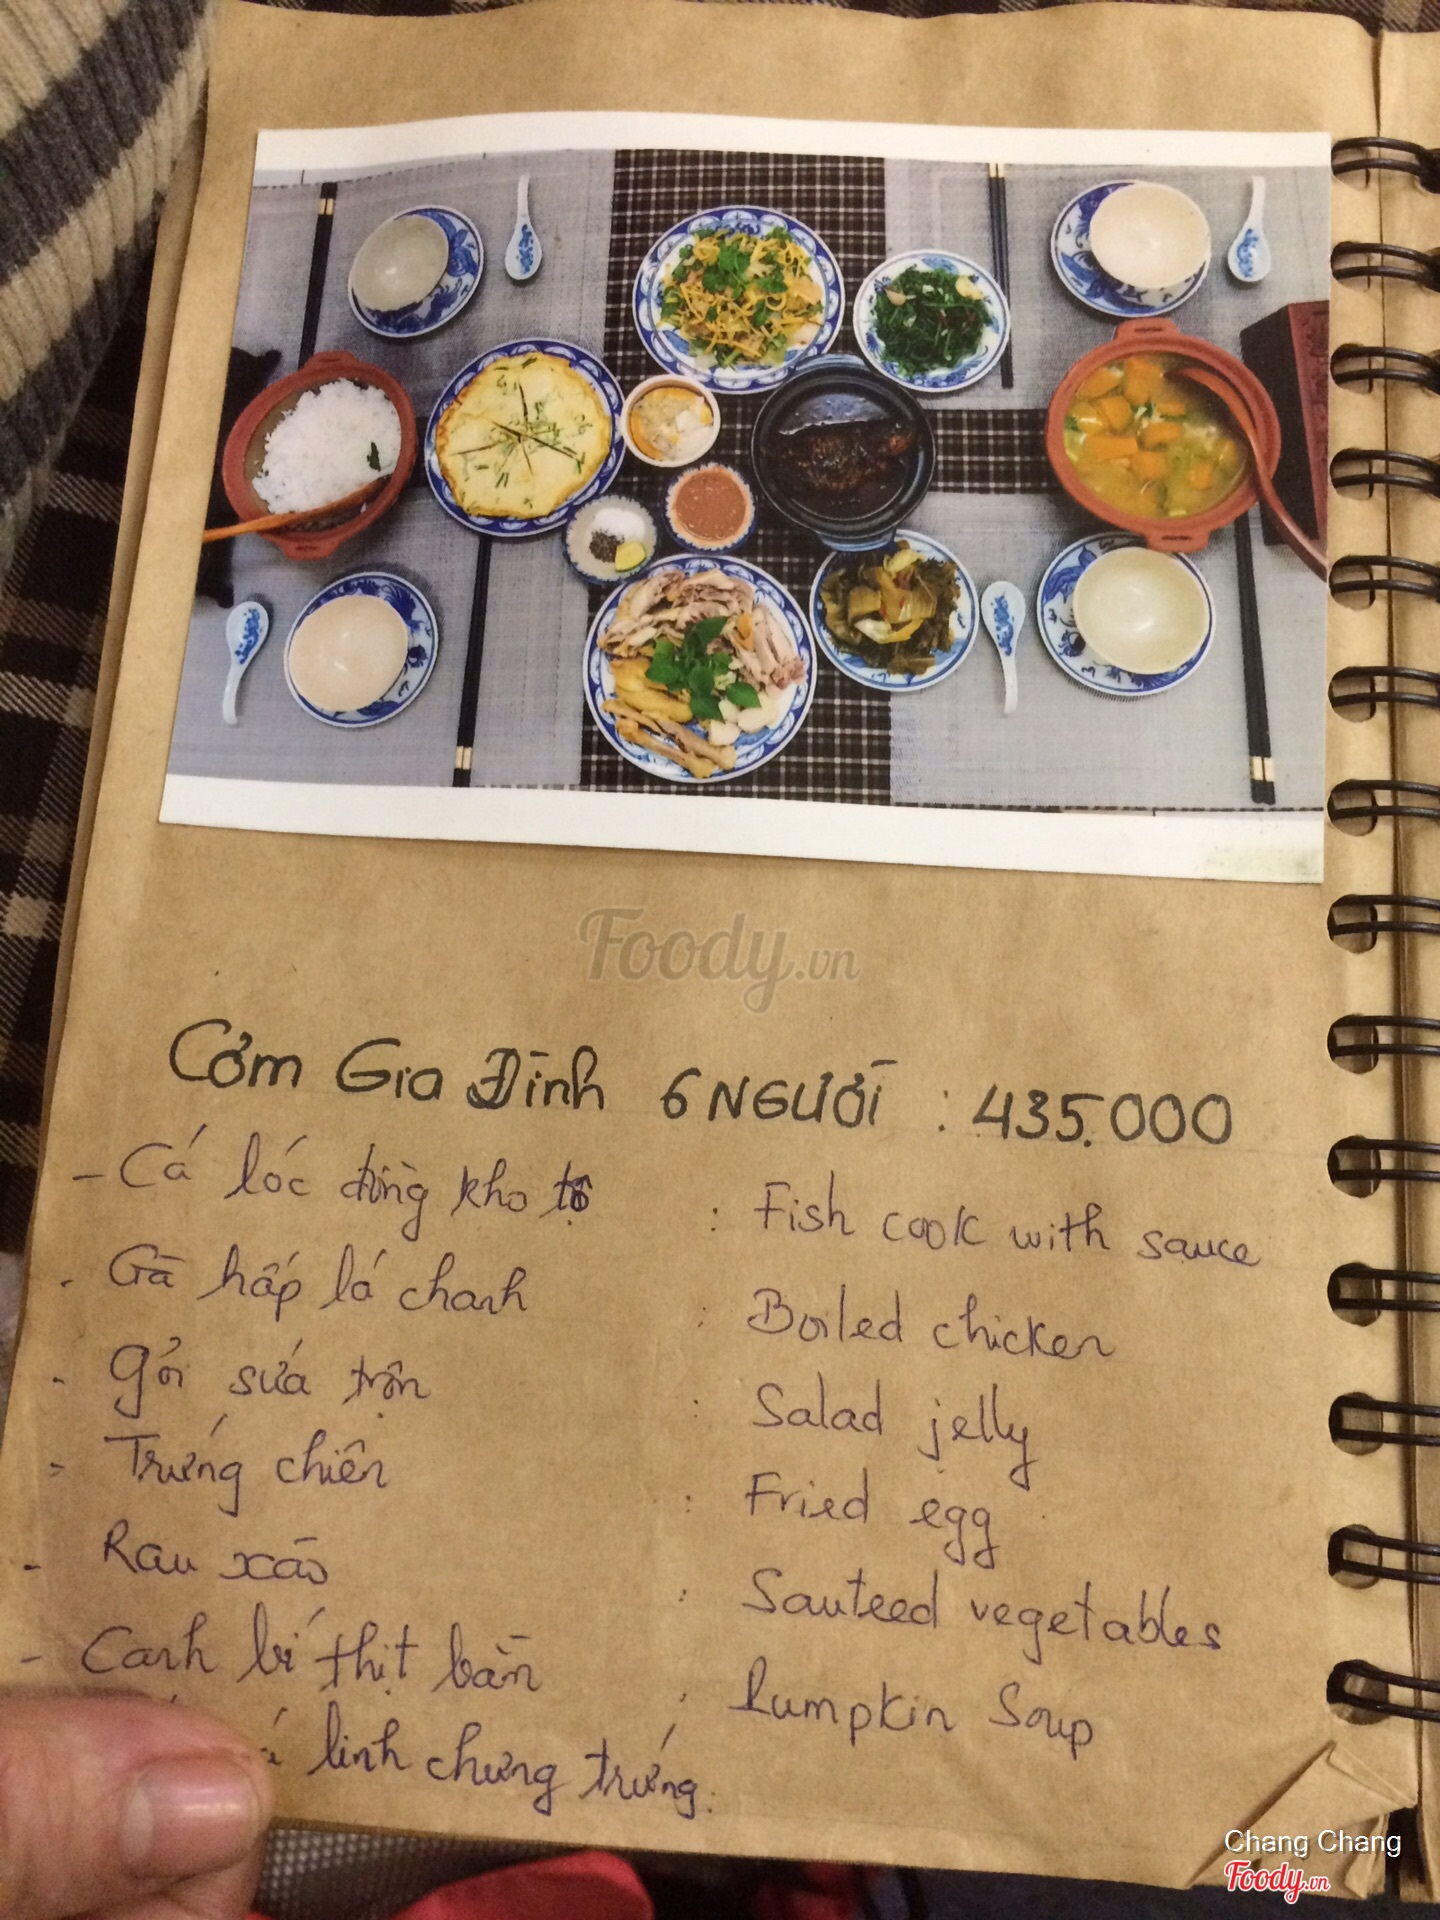 Foody.vn
Cơm Gia Đình 6 NGƯỜI : 435.000
- Cá lóc đồng kho tộ : Fish cook with sauce
- Gà hấp lá chanh : Boiled chicken
- Gỏi sứa trộn : Salad jelly
- Trứng chiên : Fried egg
- Rau xào : Sauteed vegetables
- Canh bí thịt bằm : Pumpkin Soup
linh chưng trứng.
Chang Chang
Foody.vn